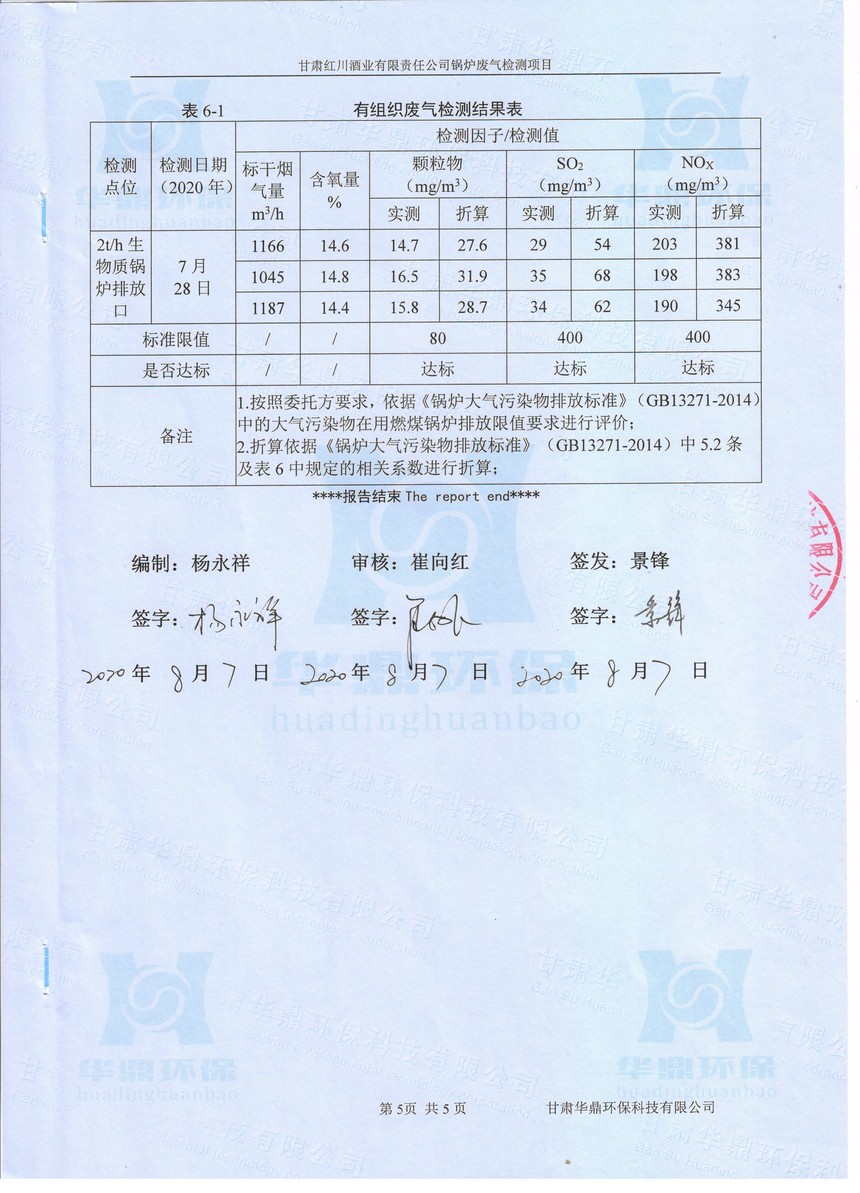 甘肃红川酒业有限责任公司锅炉废气检测项目
表 6-1 有组织废气检测结果表
检测点位 检测日期（2020 年） 检测因子/检测值
标干烟气量 m³/h 含氧量 % 颗粒物（mg/m³） SO₂（mg/m³） NOX（mg/m³）
实测 折算 实测 折算 实测 折算
2t/h 生物质锅炉排放口 7 月 28 日 1166 14.6 14.7 27.6 29 54 203 381
1045 14.8 16.5 31.9 35 68 198 383
1187 14.4 15.8 28.7 34 62 190 345
标准限值 / / 80 400 400
是否达标 / / 达标 达标 达标
备注 1.按照委托方要求，依据《锅炉大气污染物排放标准》（GB13271-2014）
中的大气污染物在用燃煤锅炉排放限值要求进行评价；
2.折算依据《锅炉大气污染物排放标准》（GB13271-2014）中 5.2 条
及表 6 中规定的相关系数进行折算；
****报告结束 The report end****
编制：杨永祥 审核：崔向红 签发：景锋
签字：杨永祥 签字： 签字：景锋
2020 年 8 月 7 日 2020 年 8 月 7 日 2020 年 8 月 7 日
华鼎环保
huadinghuanbao
有限公司
华鼎环保 华鼎环保
huadinghuanbao huadinghuanbao
第 5页 共 5 页 甘肃华鼎环保科技有限公司